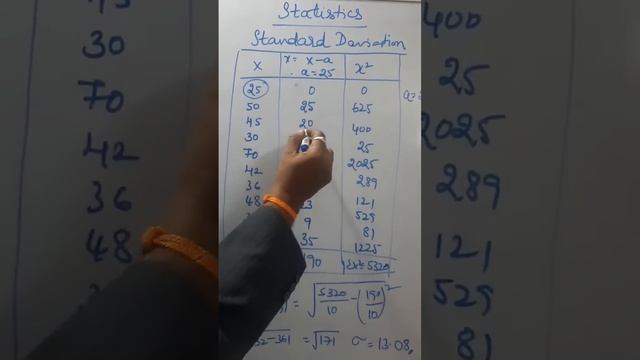 Statistics
Standard Deviation
X x = X-a x²
a=25
25 0 0
50 25 625
45 20 400
30 25
70 2025
42 289
36 121
48 23 529
9 81
35 1225
190 Σx²=5320
= √5320/10 - (190/10)²
-361 = √171 σ = 13.08,
30
70
42
36
48
25
2025
289
121
529
81